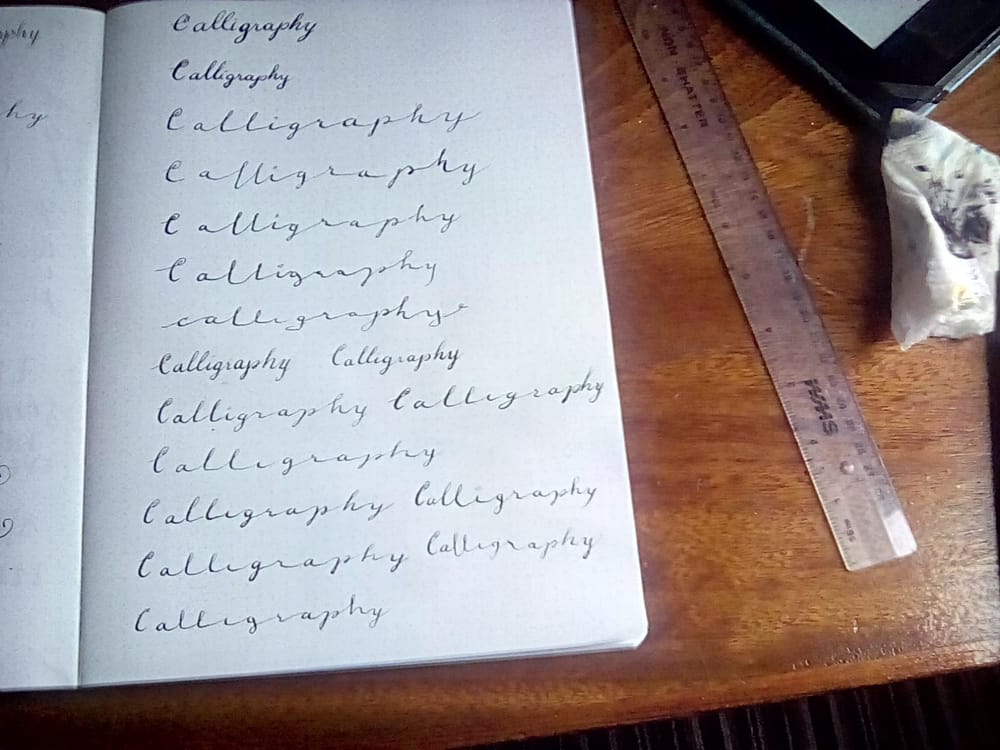 Calligraphy
Calligraphy
Calligraphy
Calligraphy
Calligraphy
Calligraphy
calligraphy
Calligraphy Calligraphy
Calligraphy Calligraphy
Calligraphy
Calligraphy Calligraphy
Calligraphy Calligraphy
Calligraphy
hy
NON-SHATTER
SWM